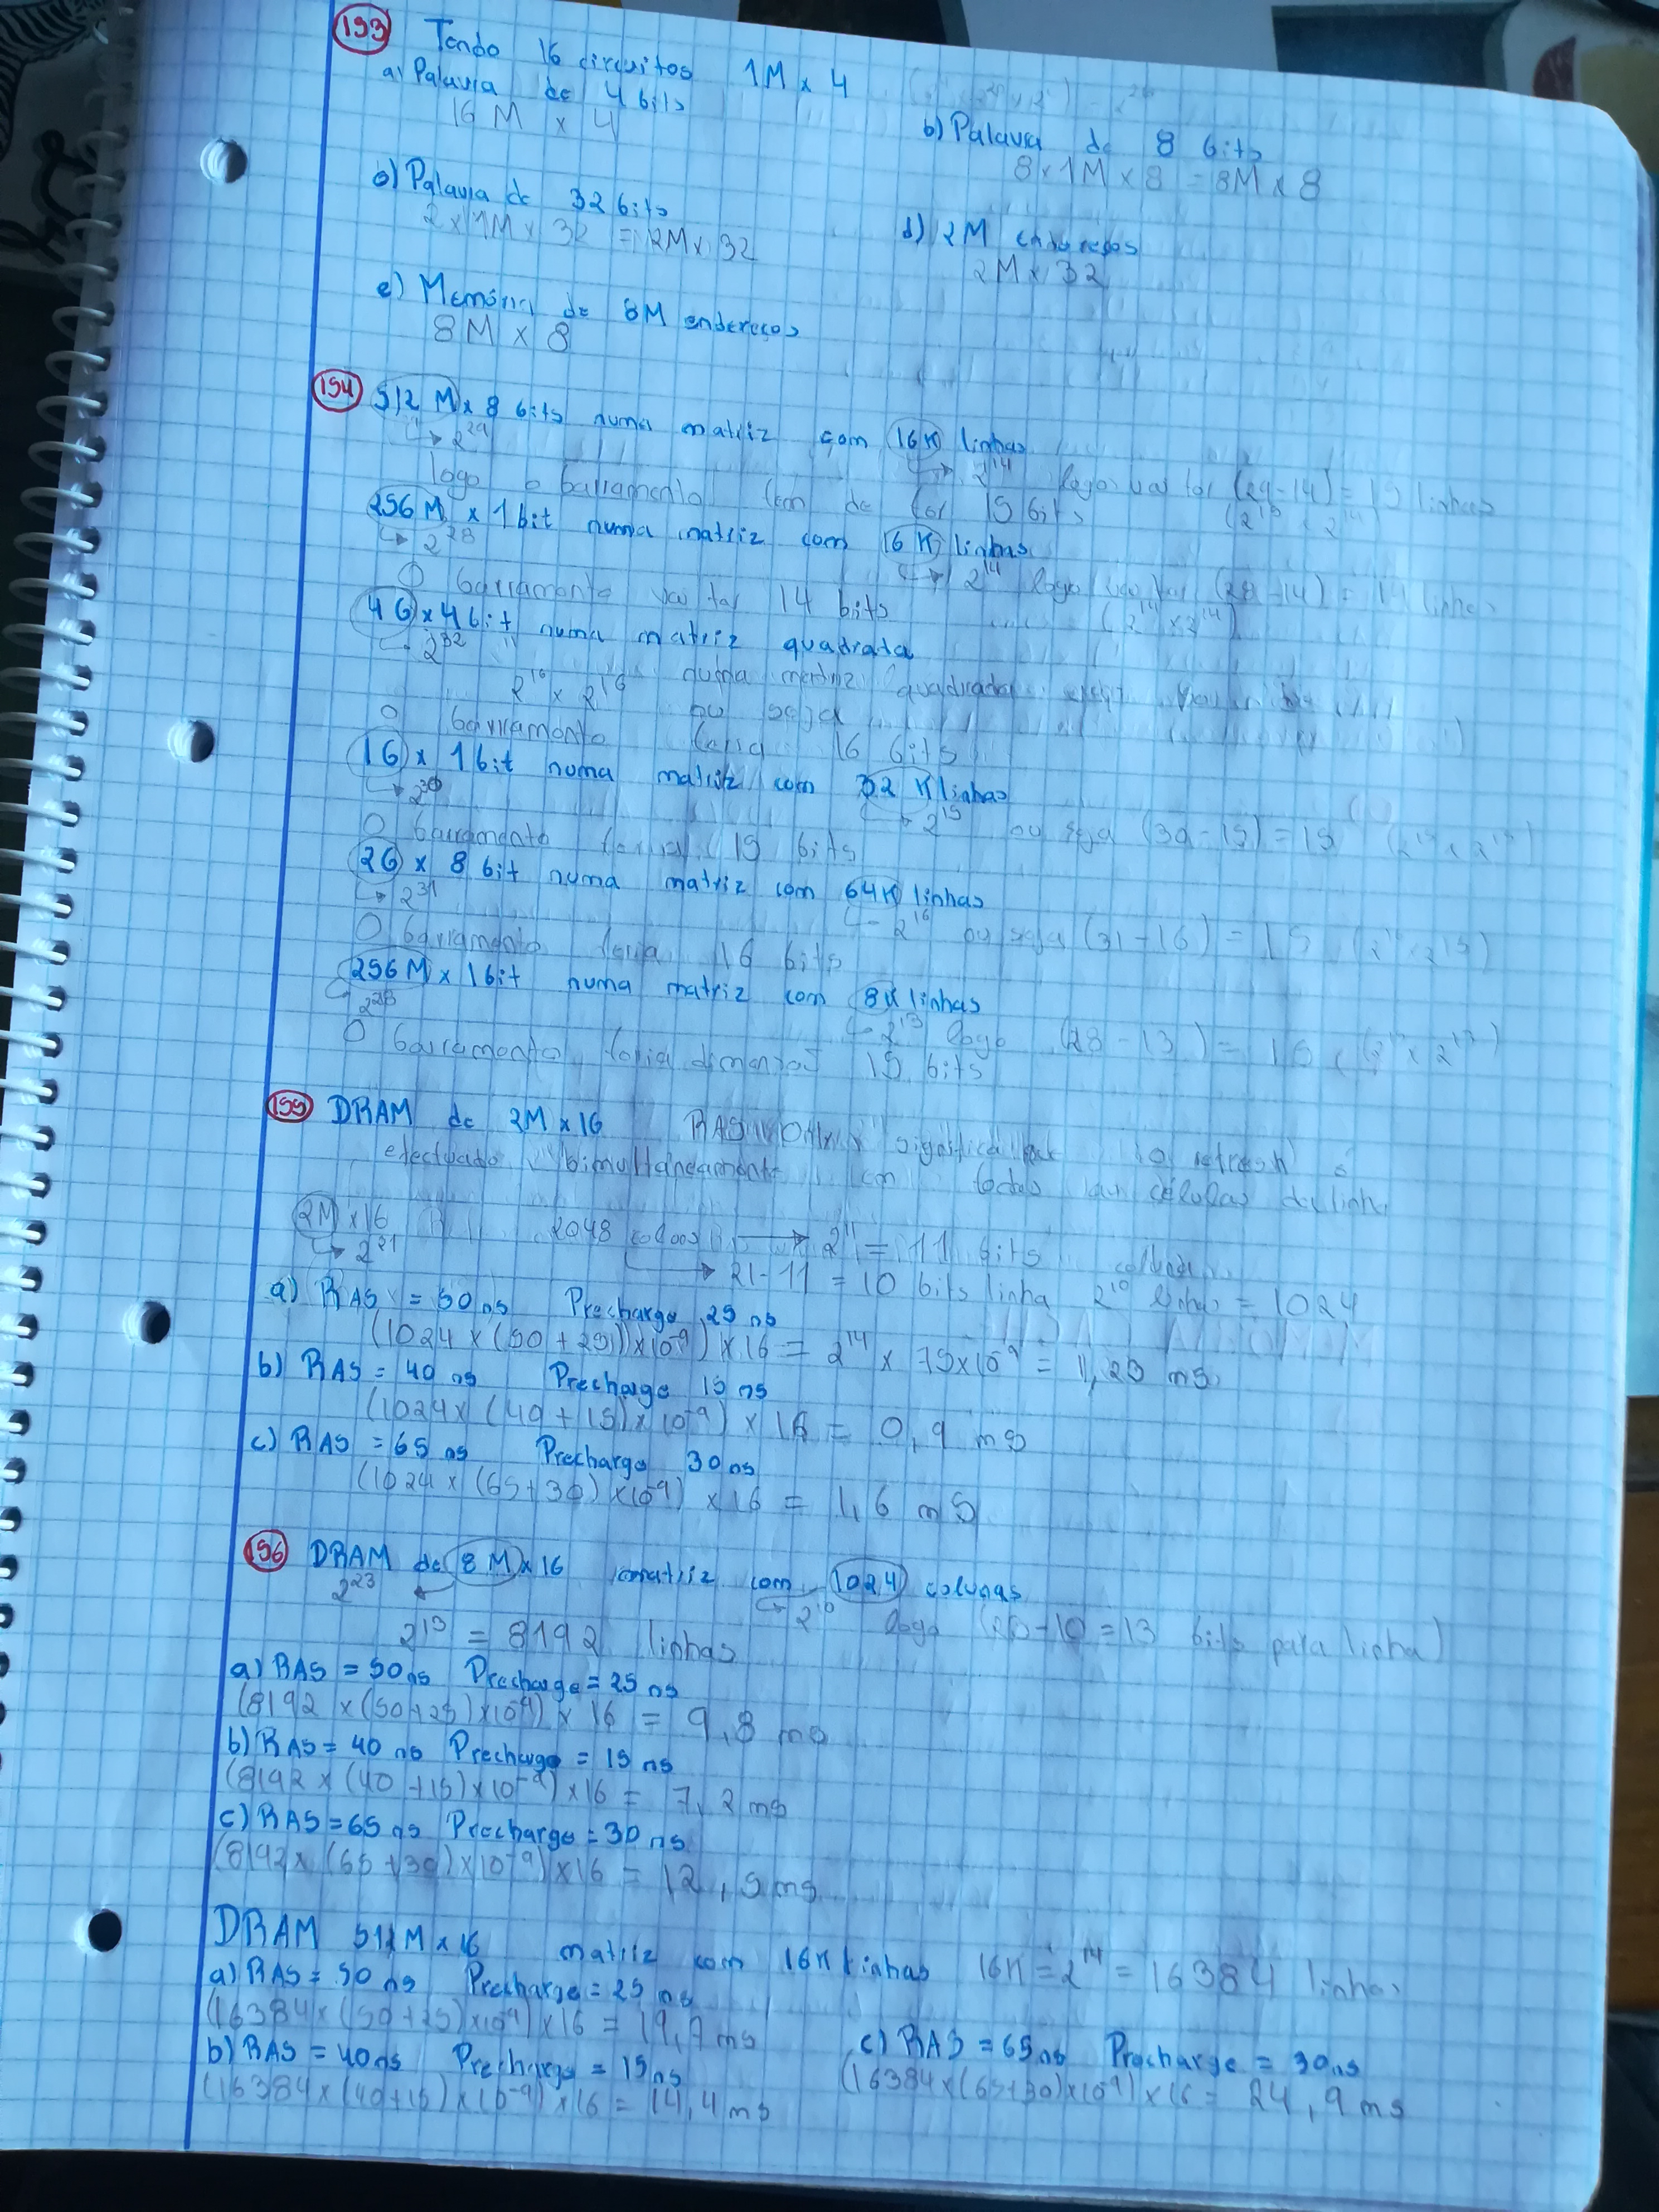 193 Tendo 16 circuitos 1M x 4
a) Palavra de 4 bits
16 M x 4
b) Palavra de 8 bits
8 x 1M x 8 = 8M x 8
c) Palavra de 32 bits
2 x 1M x 32 = 2M x 32
d) 2M endereços
2M x 32
e) Memória de 8M endereços
8M x 8
194 512 M x 8 bits numa matriz com 16K linhas
↳ 2^29 ↳ 2^14 logo vai ter (29-14) = 15 linhas
logo o barramento tem de ter 15 bits (2^15 x 2^14)
256 M x 1 bit numa matriz com 16 K linhas
↳ 2^28 ↳ 2^14 logo vai ter (28-14) = 14 linhas
O barramento vai ter 14 bits (2^14 x 2^14)
4G x 4 bit numa matriz quadrada
↳ 2^32 numa matriz quadrada
2^16 x 2^16 ou seja
O barramento teria 16 bits
1G x 1 bit numa matriz com 32 K linhas
↳ 2^30 ↳ 2^15 ou seja (30-15) = 15
O barramento teria 15 bits
2G x 8 bit numa matriz com 64K linhas
↳ 2^31 ↳ 2^16 ou seja (31-16) = 15
O barramento teria 16 bits
256 M x 1 bit numa matriz com 8K linhas
2^28 ↳ 2^13 logo (28-13) = 15
O barramento teria 15 bits
195 DRAM de 2M x 16 RAS significa que o refresh é
efectuado simultaneamente em todas as células da linha
2M x 16 2048 → 2^11 = 11 bits
↳ 2^21 → 21-11 = 10 bits linha 2^10 linhas = 1024
a) RAS = 50 ns Precharge 25 ns
(1024 x (50+25) x 10^-9) x 16 = 2^14 x 75 x 10^-9 = 1,23 ms
b) RAS = 40 ns Precharge 15 ns
(1024 x (40+15) x 10^-9) x 16 = 0,9 ms
c) RAS = 65 ns Precharge 30 ns
(1024 x (65+30) x 10^-9) x 16 = 1,6 ms
196 DRAM de 8 M x 16 matriz com 1024 colunas
2^23 ↳ 2^10 logo (23-10 = 13 bits para linha)
2^13 = 8192 linhas
a) RAS = 50 ns Precharge = 25 ns
(8192 x (50+25) x 10^-9) x 16 = 9,8 ms
b) RAS = 40 ns Precharge = 15 ns
(8192 x (40+15) x 10^-9) x 16 = 7,2 ms
c) RAS = 65 ns Precharge = 30 ns
(8192 x (65+30) x 10^-9) x 16 = 12,5 ms
DRAM 512 M x 16 matriz com 16K linhas 16K = 2^14 = 16384 linhas
a) RAS = 50 ns Precharge = 25 ns
(16384 x (50+25) x 10^-9) x 16 = 19,7 ms
b) RAS = 40 ns Precharge = 15 ns
(16384 x (40+15) x 10^-9) x 16 = 14,4 ms
c) RAS = 65 ns Precharge = 30 ns
(16384 x (65+30) x 10^-9) x 16 = 24,9 ms